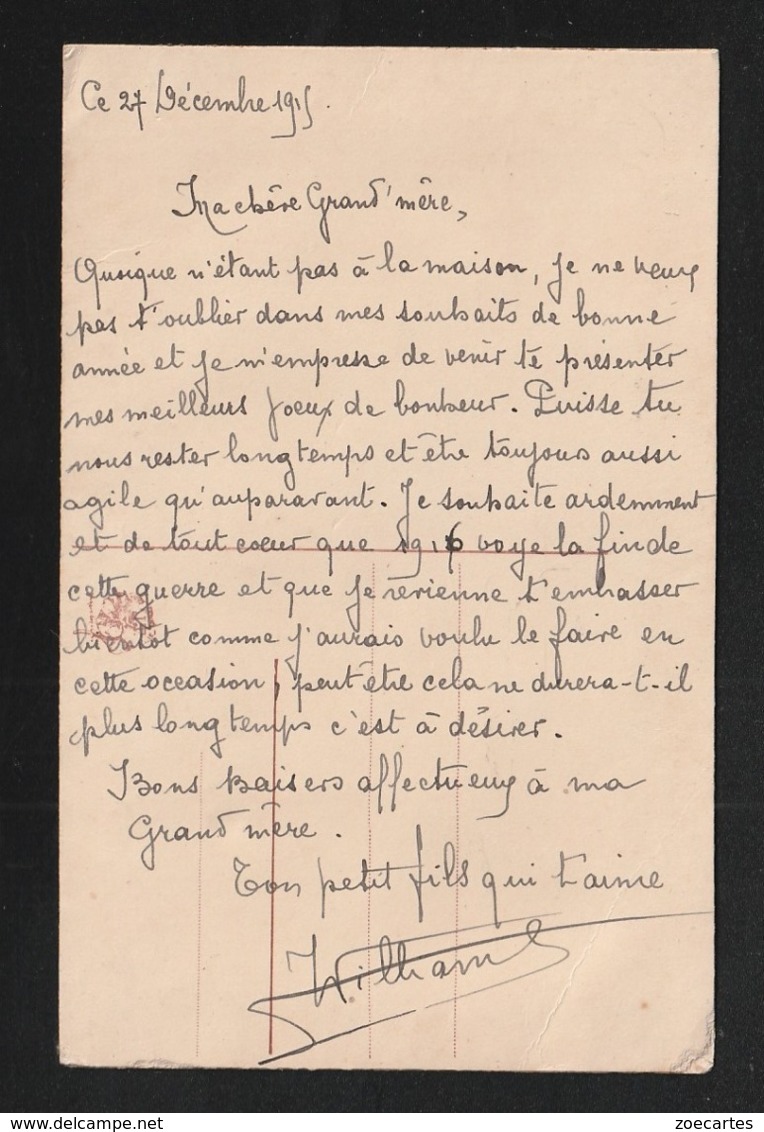 Ce 27 Décembre 1915.
Ma chère Grand'mère,
Quoique n'étant pas à la maison, je ne veux
pas t'oublier dans mes souhaits de bonne
année et je m'empresse de venir te présenter
mes meilleurs voeux de bonheur. Puisse tu
nous rester longtemps et être toujours aussi
agile qu'auparavant. Je souhaite ardemment
et de tout coeur que 1916 voye la fin de
cette guerre et que je revienne t'embrasser
bientôt comme j'aurais voulu le faire en
cette occasion, peut être cela ne durera-t-il
plus longtemps c'est à désirer.
Bons baisers affectueux à ma
Grand mère.
Ton petit fils qui t'aime
William
www.delcampe.net
zoecartes